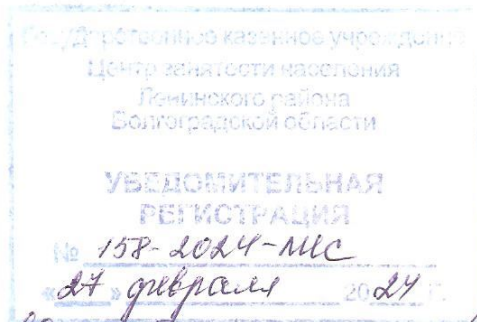 Государственное казенное учреждение
Центр занятости населения
Ленинского района
Волгоградской области
УВЕДОМИТЕЛЬНАЯ
РЕГИСТРАЦИЯ
№ 158-2024-ЛНС
«27» февраля 2024 г.